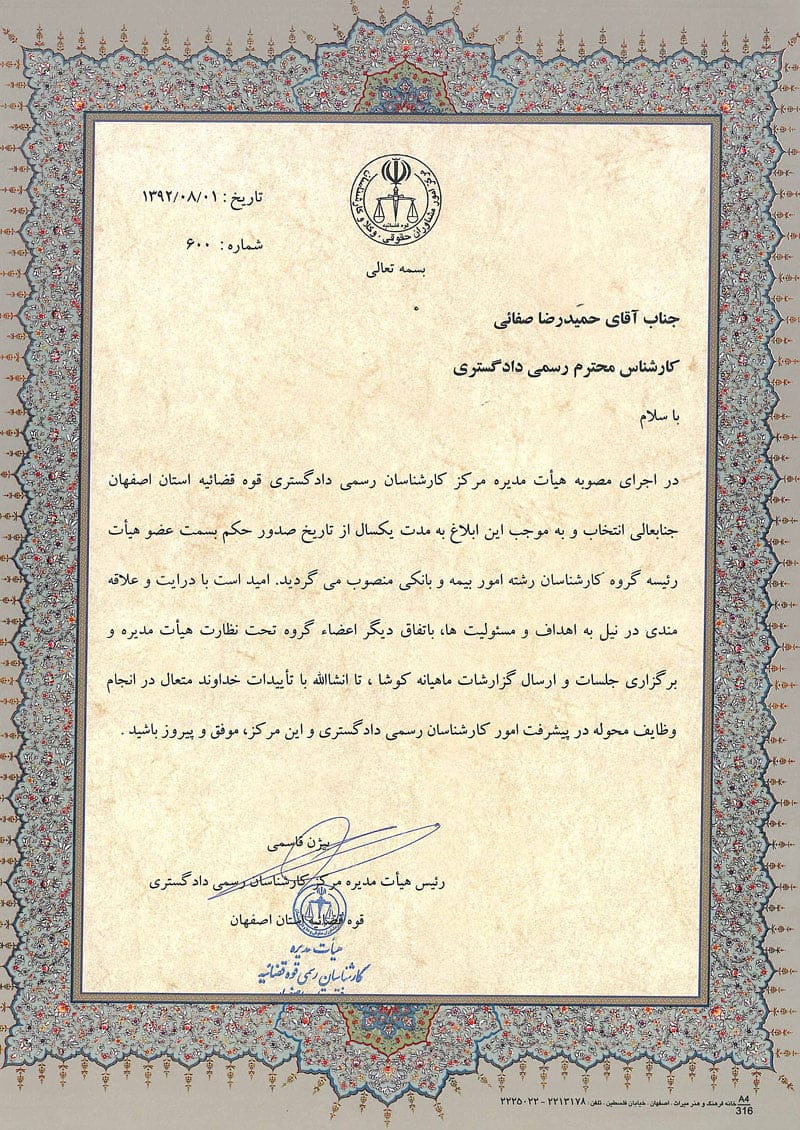 مرکز امور مشاوران حقوقی، وکلا و کارشناسان
قوه قضائیه
تاریخ : ۱۳۹۲/۰۸/۰۱
شماره : ۶۰۰
بسمه تعالی
جناب آقای حمیدرضا صفائی
کارشناس محترم رسمی دادگستری
با سلام
در اجرای مصوبه هیأت مدیره مرکز کارشناسان رسمی دادگستری قوه قضائیه استان اصفهان
جنابعالی انتخاب و به موجب این ابلاغ به مدت یکسال از تاریخ صدور حکم بسمت عضو هیأت
رئیسه گروه کارشناسان رشته امور بیمه و بانکی منصوب می گردید. امید است با درایت و علاقه
مندی در نیل به اهداف و مسئولیت ها، باتفاق دیگر اعضاء گروه تحت نظارت هیأت مدیره و
برگزاری جلسات و ارسال گزارشات ماهیانه کوشا ، تا انشاالله با تأییدات خداوند متعال در انجام
وظایف محوله در پیشرفت امور کارشناسان رسمی دادگستری و این مرکز، موفق و پیروز باشید .
بیژن قاسمی
رئیس هیأت مدیره مرکز کارشناسان رسمی دادگستری
قوه قضائیه استان اصفهان
هیأت مدیره
کارشناسان رسمی قوه قضائیه
خانه فرهنگ و هنر میراث . اصفهان . خیابان فلسطین . تلفن : ۲۲۱۳۱۷۸ - ۲۲۲۵۰۲۲
A4
316